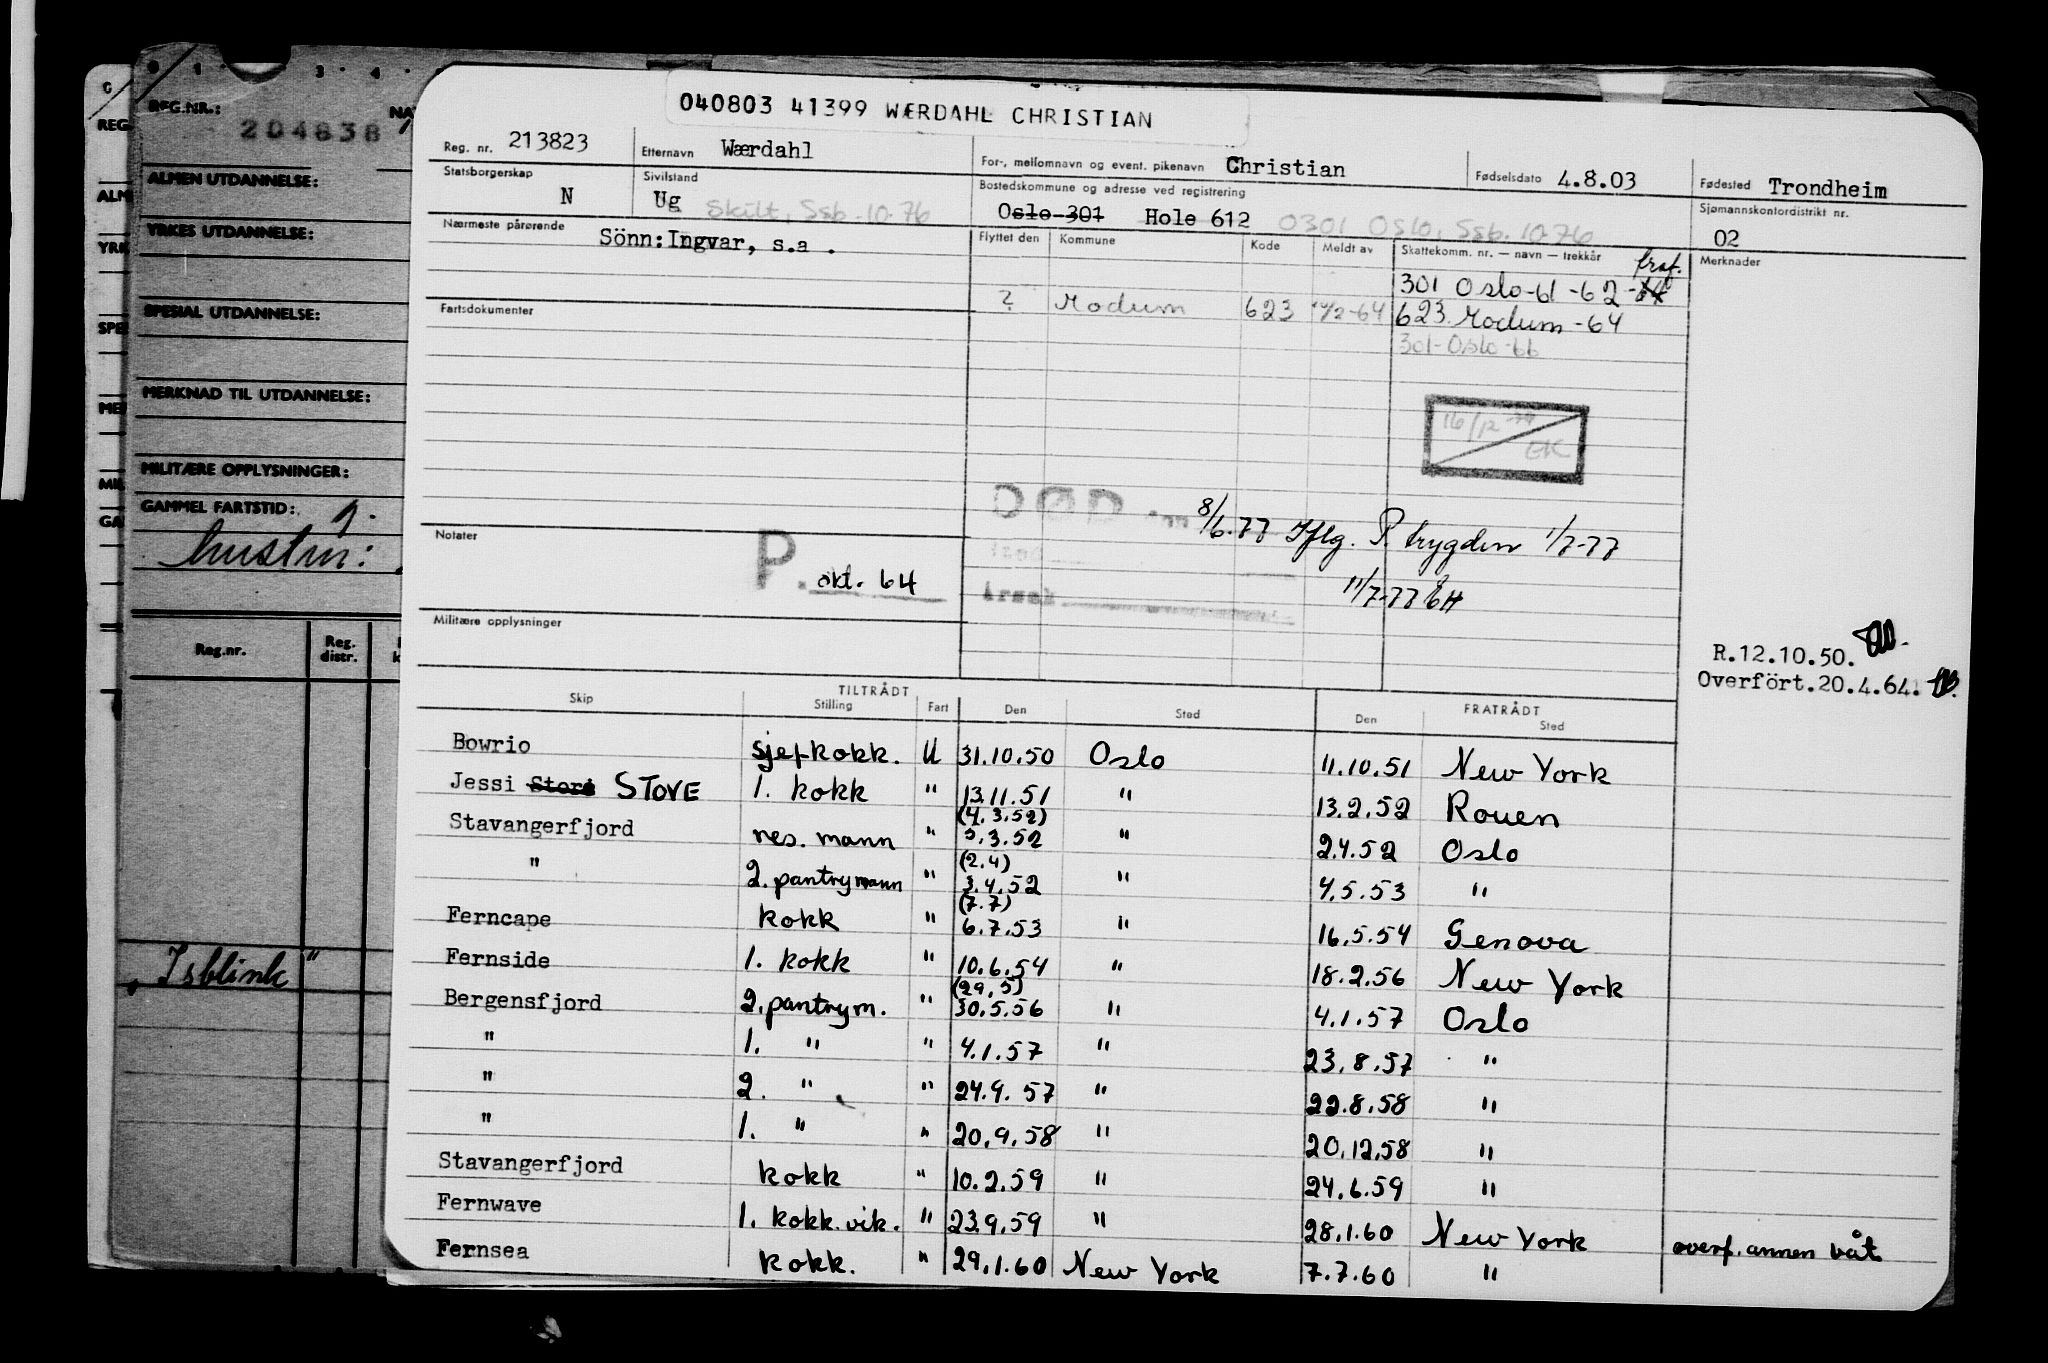 040803 41399 WÆRDAHL CHRISTIAN
Reg. nr. 213823 Etternavn Wærdahl For-, mellomnavn og event. pikenavn Christian Fødselsdato 4.8.03 Fødested Trondheim
Statsborgerskap N Sivilstand Ug Skilt, Ssb. 10.76 Bostedskommune og adresse ved registrering Oslo 301 Hole 612 0301 Oslo, Ssb. 10.76 Sjømannskontordistrikt nr. 02
Nærmeste pårørende Sönn: Ingvar, s.a. Flyttet den Kommune Kode Meldt av Skattekomm. nr. — navn — trekkår Merknader
301 Oslo-61-62
Fartsdokumenter ? Modum 623 623 Modum-64
301-Oslo-66
16/12
EK
DØD 8/6.77 Iflg. P. trygden 1/7-77
Notater P. okt. 64
11/7-77 EH
Militære opplysninger
R.12.10.50.
Overfört.20.4.64.
Skip TILTRÅDT Stilling Fart Den Sted FRATRÅDT Den Sted
Bowrio sjefkokk. U 31.10.50 Oslo 11.10.51 New York
Jessi Stors STOVE 1. kokk " 13.11.51 " 13.2.52 Rouen
Stavangerfjord res. mann " (4.3.52) 5.3.52 " 2.4.52 Oslo
" 2. pantrymann " (2.4) 3.4.52 " 4.5.53 "
Ferncape kokk " (7.7) 6.7.53 " 16.5.54 Genova
Fernside 1. kokk " 10.6.54 " 18.2.56 New York
Bergensfjord 2. pantrym. " (29.5) 30.5.56 " 4.1.57 Oslo
" 1. " " 4.1.57 " 23.8.57 "
" 2. " " 24.9.57 " 22.8.58 "
" 1. " " 20.9.58 " 20.12.58 "
Stavangerfjord kokk " 10.2.59 " 24.6.59 "
Fernwave 1. kokk.vik. " 23.9.59 " 28.1.60 New York overf. annen båt
Fernsea kokk. " 29.1.60 New York 7.7.60 "
REG.NR.: 204838
ALMEN UTDANNELSE:
YRKES UTDANNELSE:
SPESIAL UTDANNELSE:
MERKNAD TIL UTDANNELSE:
MILITÆRE OPPLYSNINGER:
GAMMEL FARTSTID:
hustru:
Reg.nr. Reg. distr.
"Isblink"